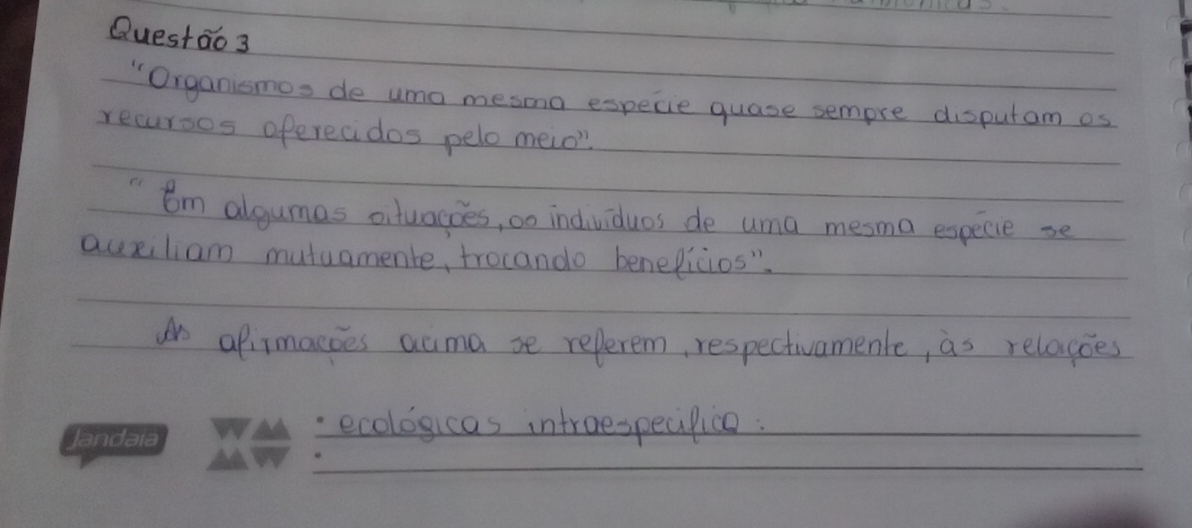 Questão 3
"Organismos de uma mesma espécie quase sempre disputam os
recursos oferecidos pelo meio".
"Em algumas situações, os indivíduos de uma mesma espécie se
auxiliam mutuamente, trocando benefícios".
As afirmações acima se referem, respectivamente, às relações
ecológicas intraespecífica:
Jandaia